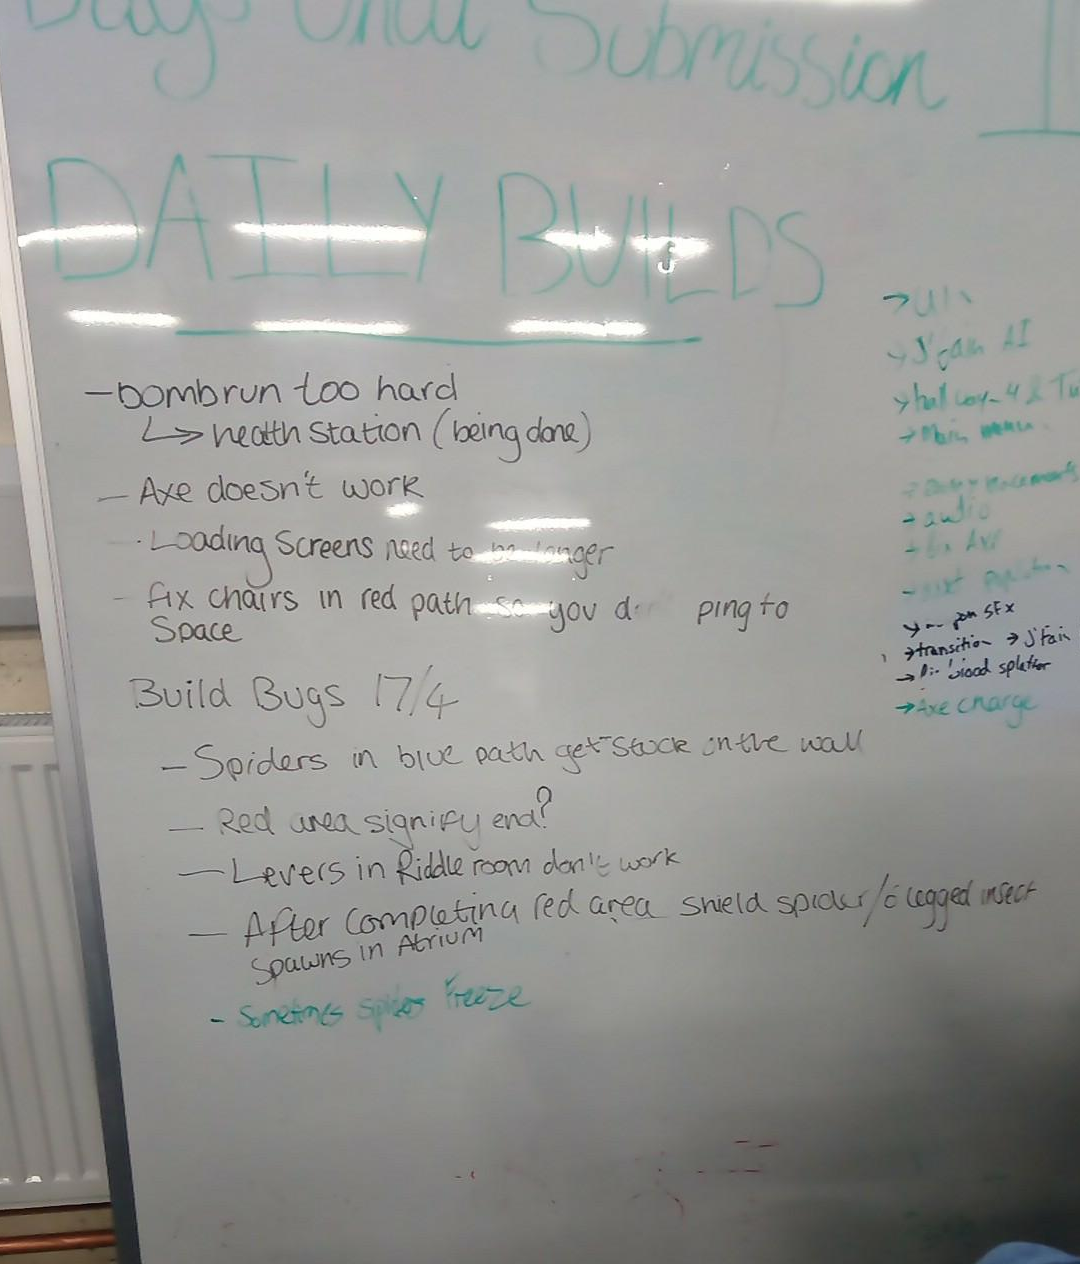 Days Until Submission
DAILY BUILDS
- bombrun too hard
↳ health station (being done)
- Axe doesn't work
- Loading Screens need to be longer
- fix chairs in red path so you ping to
Space
Build Bugs 17/4
- Spiders in blue path get stuck on the wall
- Red area signify end?
- Levers in Riddle room don't work
- After Completing red area shield spider/6 legged insect
Spawns in Atrium
- Sometimes spiders Freeze
→ AI
→ hallway_4 &
→ Main menu
→ audio
→ SFX
→ transition →
→ blood splatter
→ Axe charge